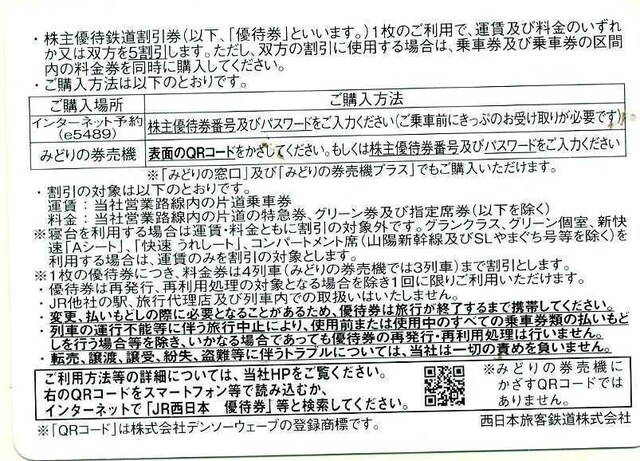 ・株主優待鉄道割引券(以下、「優待券」といいます。)1枚のご利用で、運賃及び料金のいずれ
か又は双方を5割引します。ただし、双方の割引に使用する場合は、乗車券及び乗車券の区間
内の料金券を同時に購入してください。
・ご購入方法は以下のとおりです。
ご購入場所 ご購入方法
インターネット予約 株主優待券番号及びパスワードをご入力ください(ご乗車前にきっぷのお受け取りが必要です)
(e5489)
みどりの券売機 表面のQRコードをかざしてください。もしくは株主優待券番号及びパスワードをご入力ください
※「みどりの窓口」及び「みどりの券売機プラス」でもご購入いただけます。
・割引の対象は以下のとおりです。
運賃:当社営業路線内の片道乗車券
料金:当社営業路線内の片道の特急券、グリーン券及び指定席券(以下を除く)
※寝台を利用する場合は運賃・料金ともに割引の対象外です。グランクラス、グリーン個室、新快
速「Aシート」、「快速 うれしート」、コンパートメント席(山陽新幹線及びSLやまぐち号等を除く)を
利用する場合は、運賃のみを割引の対象とします。
※1枚の優待券につき、料金券は4列車(みどりの券売機では3列車)まで割引とします。
・優待券は再発行、再利用処理の対象となる場合を除き1回に限りご利用いただけます。
・JR他社の駅、旅行代理店及び列車内での取扱いはいたしません。
・変更、払いもどしの際に必要となることがあるため、優待券は旅行が終了するまで携帯してください。
・列車の運行不能等に伴う旅行中止により、使用前または使用中のすべての乗車券類の払いもど
しを行う場合等を除き、いかなる場合であっても優待券の再発行・再利用処理は行いません。
・転売、譲渡、譲受、紛失、盗難等に伴うトラブルについては、当社は一切の責めを負いません。
ご利用方法等の詳細については、当社HPをご覧ください。
右のQRコードをスマートフォン等で読み込むか、
インターネットで「JR西日本 優待券」等と検索してください。
※みどりの券売機に
かざすQRコードでは
ありません。
※「QRコード」は株式会社デンソーウェーブの登録商標です。
西日本旅客鉄道株式会社